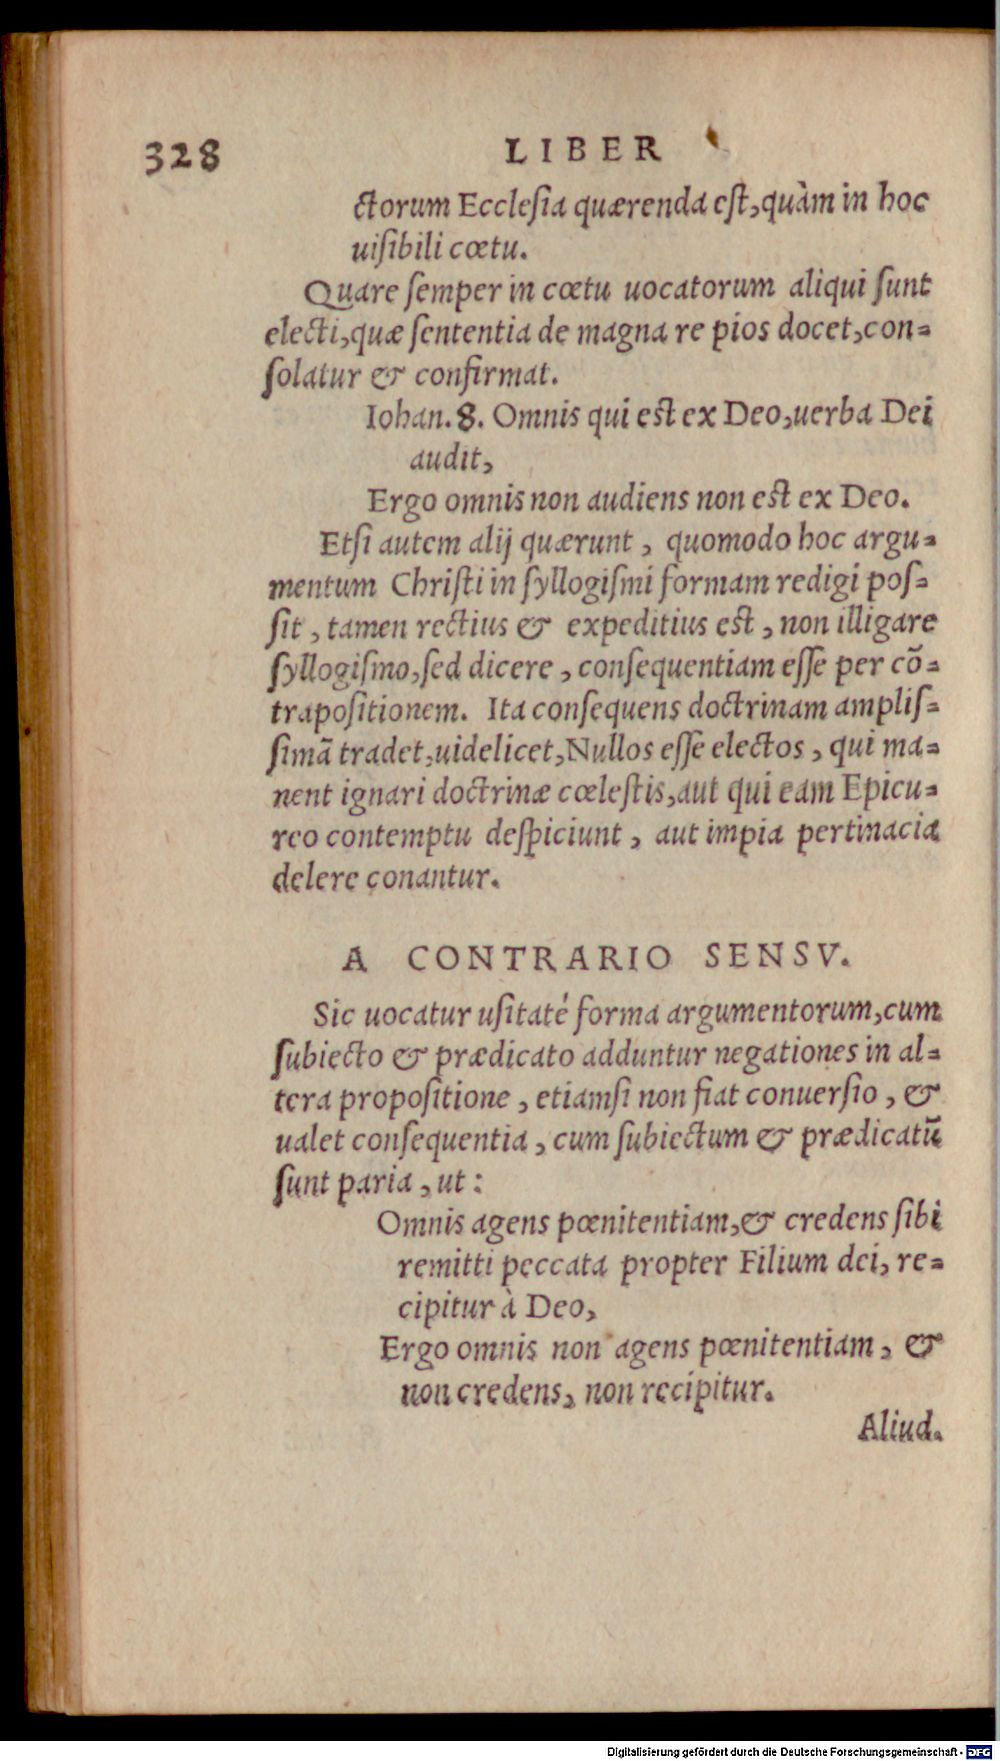 328 LIBER
ctorum Ecclesia quærenda est, quàm in hoc
uisibili cœtu.
Quare semper in cœtu uocatorum aliqui sunt
electi, quæ sententia de magna re pios docet, con=
solatur & confirmat.
Iohan. 8. Omnis qui est ex Deo, uerba Dei
audit,
Ergo omnis non audiens non est ex Deo.
Etsi autem alij quærunt, quomodo hoc argu=
mentum Christi in syllogismi formam redigi pos=
sit, tamen rectius & expeditius est, non illigare
syllogismo, sed dicere, consequentiam esse per cõ=
trapositionem. Ita consequens doctrinam amplis=
simã tradet, uidelicet, Nullos esse electos, qui ma=
nent ignari doctrinæ cœlestis, aut qui eam Epicu=
reo contemptu despiciunt, aut impia pertinacia
delere conantur.
A CONTRARIO SENSV.
Sic uocatur usitaté forma argumentorum, cum
subiecto & prædicato adduntur negationes in al=
tera propositione, etiamsi non fiat conuersio, &
ualet consequentia, cum subiectum & prædicatũ
sunt paria, ut:
Omnis agens pœnitentiam, & credens sibi
remitti peccata propter Filium dei, re=
cipitur à Deo,
Ergo omnis non agens pœnitentiam, &
non credens, non recipitur.
Aliud.
Digitalisierung gefördert durch die Deutsche Forschungsgemeinschaft - DFG